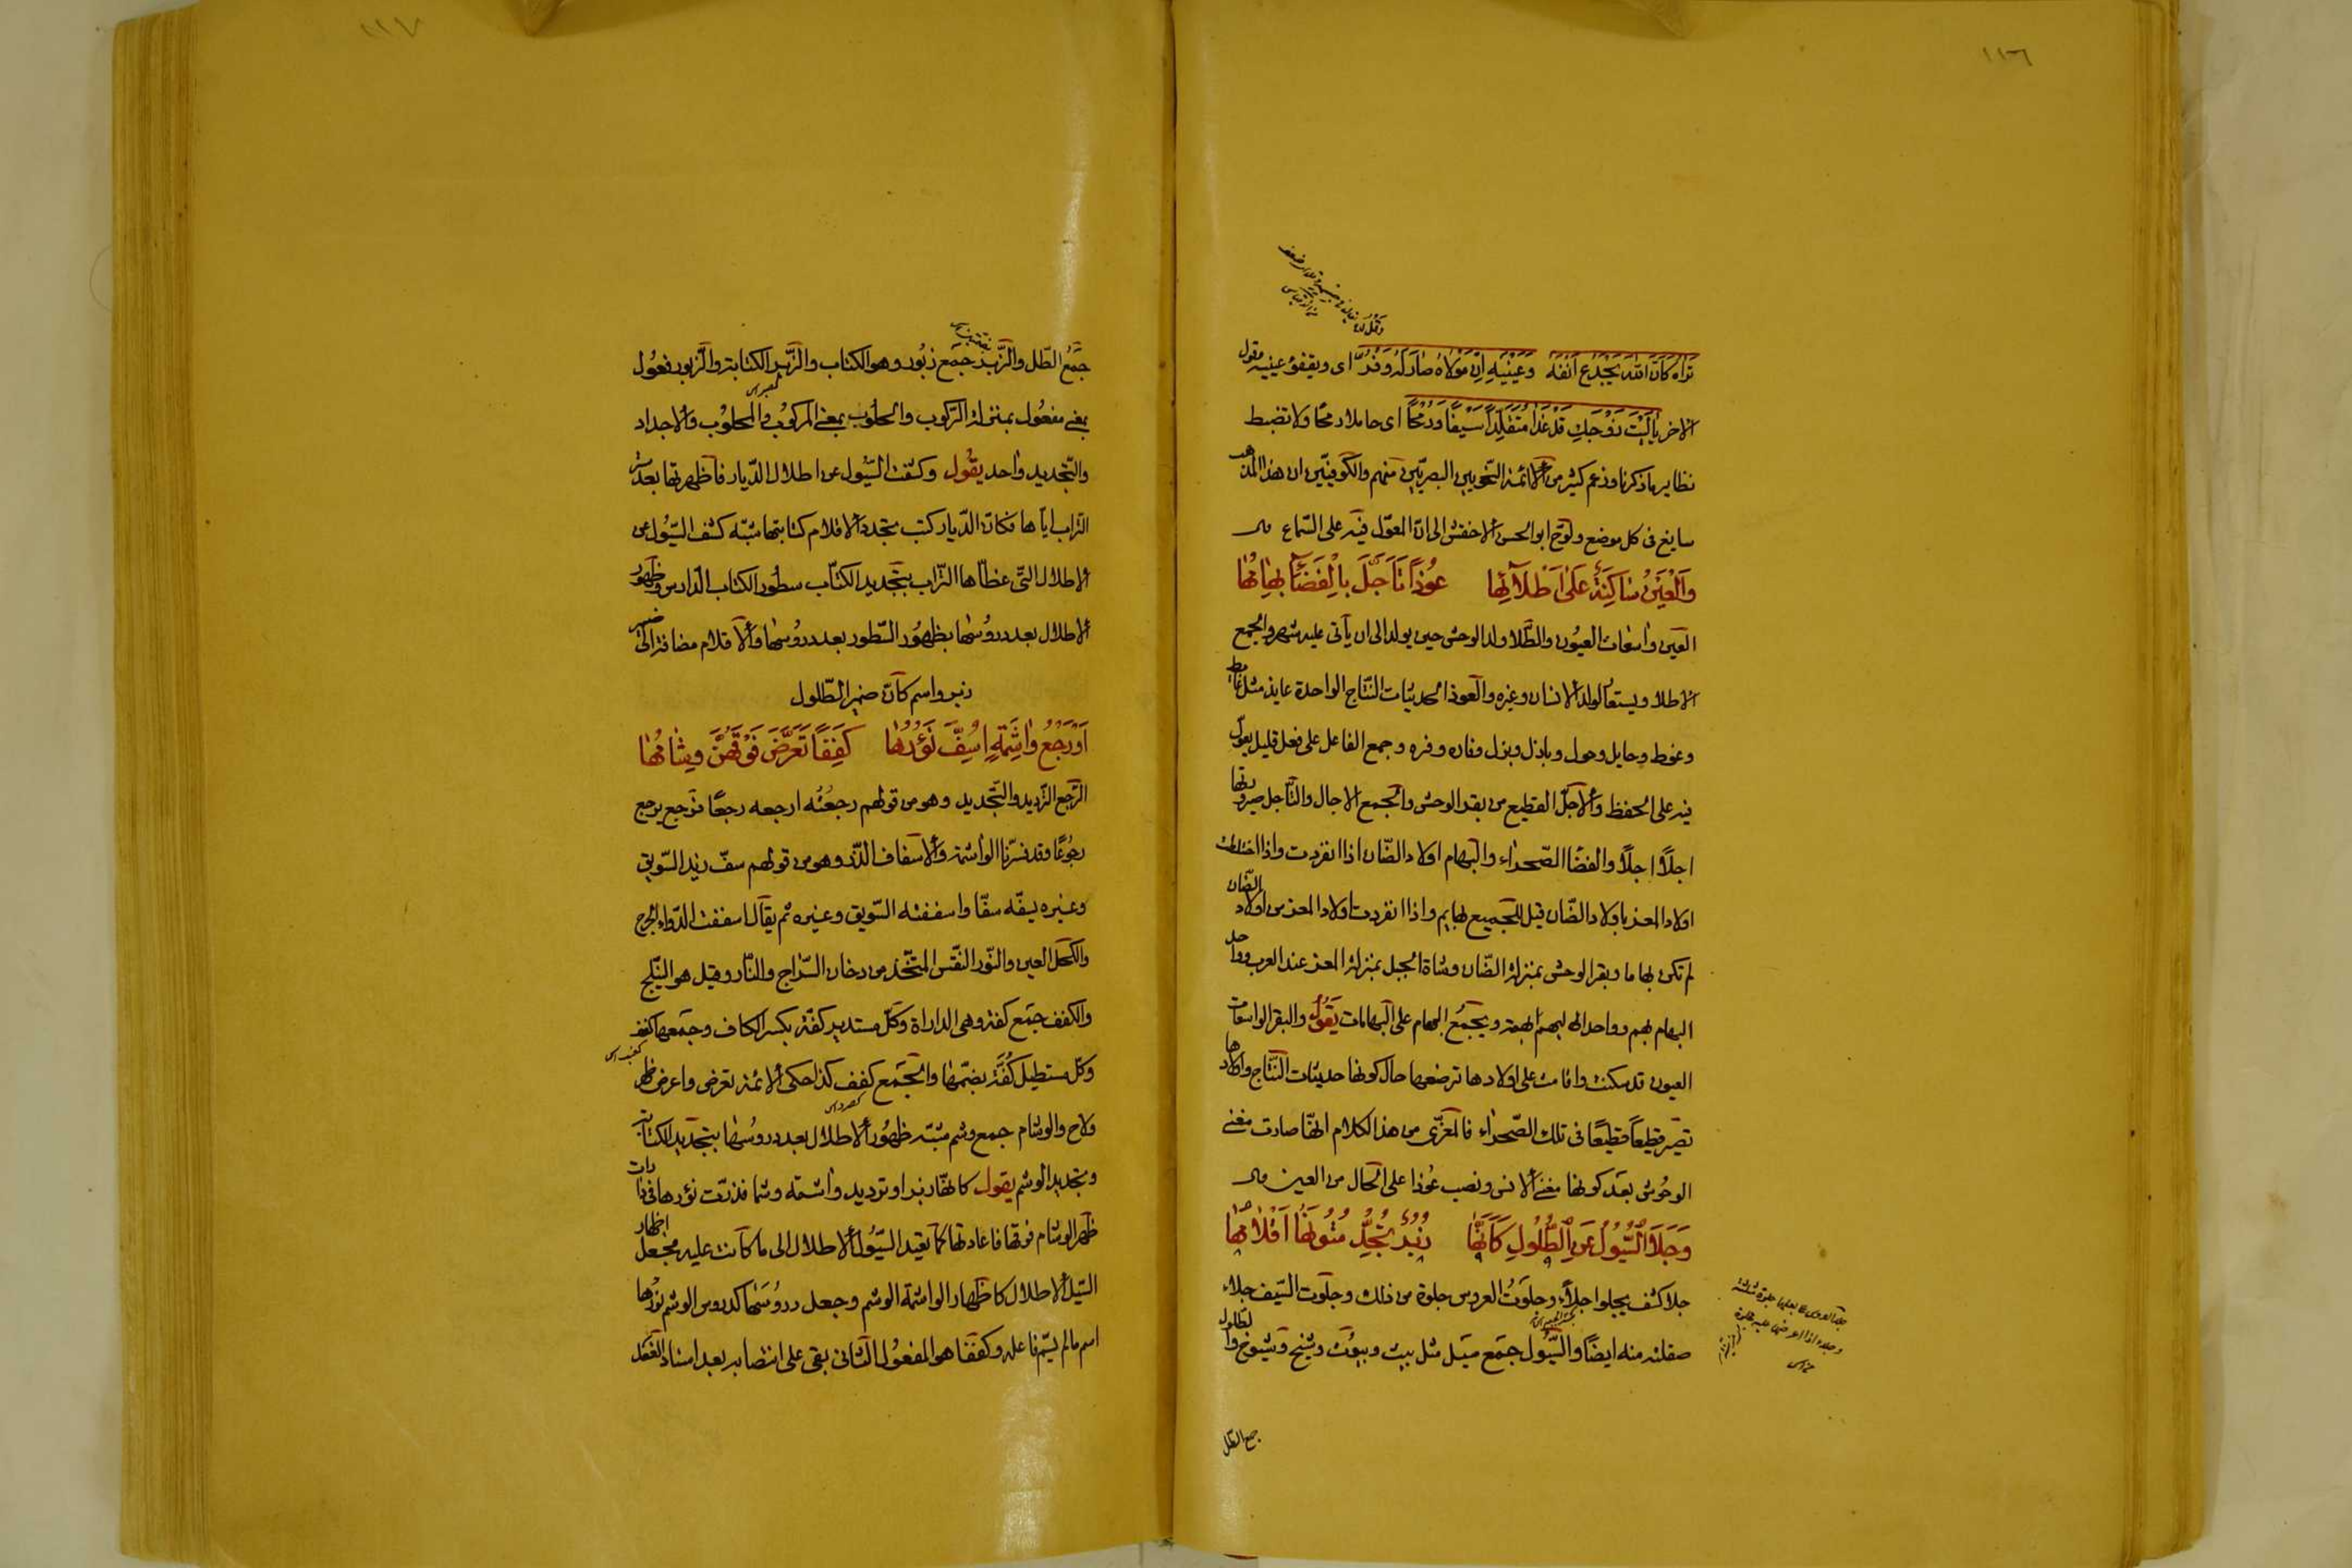 ١١٦
تراه كان الله يجدع انفه وعينيه ان مولاه صار له وفر اى ويفقؤ عينيه وقول
الاخر يا ليت زوجك قد غدا متقلدا سيفا ورمحا اى حاملا رمحا ولا تضبط
نظاير ما ذكرنا وزعم كثير من الائمة النحويين البصريين منهم والكوفيين ان هذا المذهب
سايغ فى كل موضع ولوح ابو الحسن الاخفش الى ان المعول فيه على السماع قال
وَالْعَيْنُ سَاكِنَةٌ عَلَى اَطْلَآئِهَا عُوْذًا تَاَجَّلَ بِالْفَضَآءِ بِهَامُهَا
العين واسعات العيون والطلا ولد الوحش حين يولد الى ان يأتى عليه شهر والجمع
الاطلاء ويستعار لولد الانسان وغيره والعوذ الحديثات النتاج الواحدة عايذ مثل عايط
وعوط وحايل وحول وبازل وبزل وفاره وفره وجمع الفاعل على فعل قليل يعول
فيه على الحفظ والاجل القطيع من بقر الوحش والجمع الاجال والتأجل صيرورتها
اجلا اجلا والفضا الصحراء والبهام اولاد الضان اذا انفردت واذا اختلطت
اولاد المعز باولاد الضان قيل للجميع بهايم واذا انفردت اولاد المعز من اولاد الضان
لم تكن بهاما وبقر الوحش بمنزلة الضان وشاة الجبل بمنزلة المعز عند العرب وواحد
البهام بهم وواحد البهم بهمة ويجمع البهام على البهامات يقول والبقر الواسعات
العيون قد سكنت واقامت على اولادها ترضعها حال كونها حديثات النتاج واولادها
تصير قطيعا قطيعا فى تلك الصحراء فالمغزى من هذا الكلام انها صارت مغنى
الوحوش بعد كونها مغنى الانس ونصب عوذا على الحال من العين قال
وَجَلَا السُّيُوْلُ عَنِ الطُّلُوْلِ كَاَنَّهَا زُبُرٌ تُجِدُّ مُتُوْنَهَا اَقْلَامُهَا
جلا كشف يجلوا جلاء وجلوت العروس جلوة من ذلك وجلوت السيف جلاء
صقلته منه ايضا والسيول جمع سيل مثل بيت وبيوت وشيخ وشيوخ والطلول
جمع الطل
١١٧
جمع الطلل والزبر جمع زبور وهو الكتاب والزبر الكتابة والزبور فعول
بمعنى مفعول بمنزلة الركوب والحلوب بمعنى المركوب والمحلوب والاجداد
والتجديد واحد يقول وكشفت السيول عن اطلال الديار فاظهرتها بعد ستر
التراب اياها فكان الديار كتب تجدد الاقلام كتابتها شبه كشف السيول عن
الاطلال التى غطاها التراب بتجديد الكتاب سطور الكتاب الدارس وظهور
الاطلال بعد دروسها بظهور السطور بعد دروسها والاقلام مضافة الى ضمير
زبر واسم كان ضمير الطلول
اَوْ رَجْعُ وَاشِمَةٍ اُسِفَّ نَؤُوْرُهَا كِفَفًا تَعَرَّضَ فَوْقَهُنَّ وِشَامُهَا
الرجع الترديد والتجديد وهو من قولهم رجعته ارجعه رجعا فرجع يرجع
رجوعا وقد فسرنا الواشمة والاسفاف الذر وهو من قولهم سف زيد السويق
وغيره يسفه سفا واسففته السويق وغيره ثم يقال اسففت الدواء الجرح
والكحل العين والنور النقس المتخذ من دخان السراج والنار وقيل هو النيلج
والكفف جمع كفة وهى الداراة وكل مستدير كفة بكسر الكاف وجمعها كفف
وكل مستطيل كفة بضمها والجمع كفف كذا حكى الائمة تعرض واعرض ظهر
ولاح والوشام جمع وشم شبه ظهور الاطلال بعد دروسها بتجديد الكتابة
وتجديد الوشم يقول كانها زبر او ترديد واشمة وشما قد ذرت نؤرها فى دارات
ظهر الوشام فوقها فاعادتها كما تعيد السيول الاطلال الى ما كانت عليه فجعل اظهار
السيل الاطلال كاظهار الواشمة الوشم وجعل دروسها كدروس الوشم نؤرها
اسم ما لم يسم فاعله وكففا هو المفعول الثانى بقى على انتصابه بعد اسناد الفعل